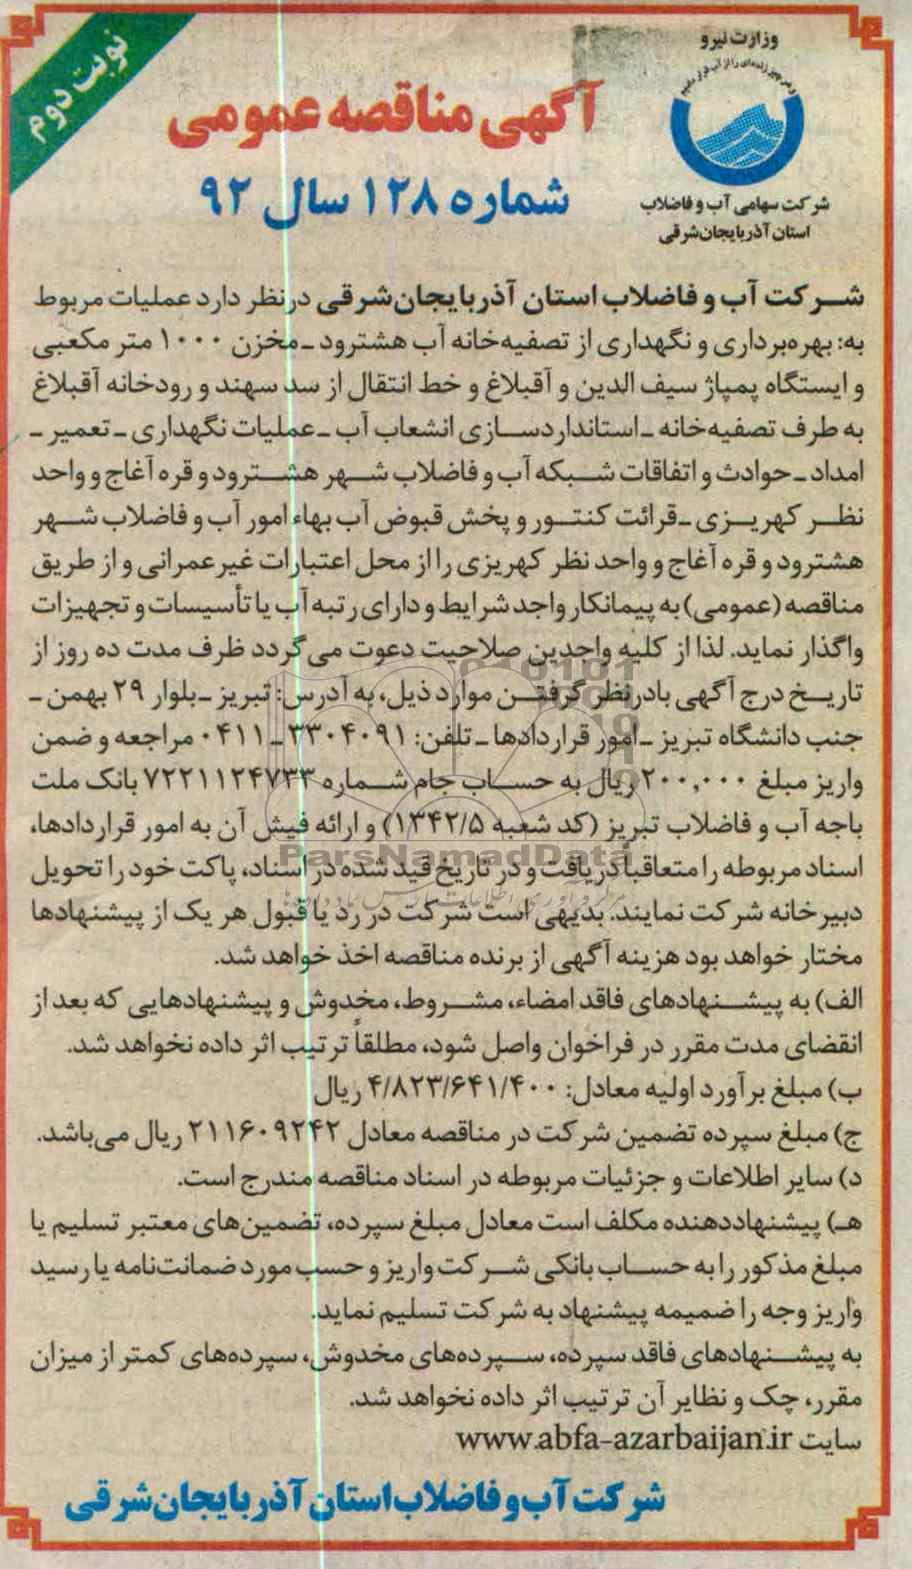 نوبت دوم
وزارت نیرو
شرکت سهامی آب و فاضلاب
استان آذربایجان‌شرقی
آگهی مناقصه عمومی
شماره ۱۲۸ سال ۹۲
شرکت آب و فاضلاب استان آذربایجان‌شرقی درنظر دارد عملیات مربوط
به: بهره‌برداری و نگهداری از تصفیه‌خانه آب هشترود ـ مخزن ۱۰۰۰ متر مکعبی
و ایستگاه پمپاژ سیف الدین و آقبلاغ و خط انتقال از سد سهند و رودخانه آقبلاغ
به طرف تصفیه‌خانه ـ استانداردسازی انشعاب آب ـ عملیات نگهداری ـ تعمیر ـ
امداد ـ حوادث و اتفاقات شبکه آب و فاضلاب شهر هشترود و قره آغاج و واحد
نظر کهریزی ـ قرائت کنتور و پخش قبوض آب بهاء امور آب و فاضلاب شهر
هشترود و قره آغاج و واحد نظر کهریزی را از محل اعتبارات غیرعمرانی و از طریق
مناقصه (عمومی) به پیمانکار واجد شرایط و دارای رتبه آب یا تأسیسات و تجهیزات
واگذار نماید. لذا از کلیه واجدین صلاحیت دعوت می‌گردد ظرف مدت ده روز از
تاریخ درج آگهی بادرنظر گرفتن موارد ذیل، به آدرس: تبریز ـ بلوار ۲۹ بهمن ـ
جنب دانشگاه تبریز ـ امور قراردادها ـ تلفن: ۳۳۰۴۰۹۱ ـ ۰۴۱۱ مراجعه و ضمن
واریز مبلغ ۲۰۰,۰۰۰ ریال به حساب جام شماره ۷۲۲۱۱۲۴۷۳۳ بانک ملت
باجه آب و فاضلاب تبریز (کد شعبه ۱۳۴۲/۵) و ارائه فیش آن به امور قراردادها،
اسناد مربوطه را متعاقبا دریافت و در تاریخ قید شده در اسناد، پاکت خود را تحویل
دبیرخانه شرکت نمایند. بدیهی است شرکت در رد یا قبول هر یک از پیشنهادها
مختار خواهد بود هزینه آگهی از برنده مناقصه اخذ خواهد شد.
الف) به پیشنهادهای فاقد امضاء، مشروط، مخدوش و پیشنهادهایی که بعد از
انقضای مدت مقرر در فراخوان واصل شود، مطلقاً ترتیب اثر داده نخواهد شد.
ب) مبلغ برآورد اولیه معادل: ۴/۸۲۳/۶۴۱/۴۰۰ ریال
ج) مبلغ سپرده تضمین شرکت در مناقصه معادل ۲۱۱۶۰۹۲۴۲ ریال می‌باشد.
د) سایر اطلاعات و جزئیات مربوطه در اسناد مناقصه مندرج است.
هـ) پیشنهاددهنده مکلف است معادل مبلغ سپرده، تضمین‌های معتبر تسلیم یا
مبلغ مذکور را به حساب بانکی شرکت واریز و حسب مورد ضمانت‌نامه یا رسید
واریز وجه را ضمیمه پیشنهاد به شرکت تسلیم نماید.
به پیشنهادهای فاقد سپرده، سپرده‌های مخدوش، سپرده‌های کمتر از میزان
مقرر، چک و نظایر آن ترتیب اثر داده نخواهد شد.
سایت www.abfa-azarbaijan.ir
شرکت آب و فاضلاب استان آذربایجان‌شرقی
ParsNamadData